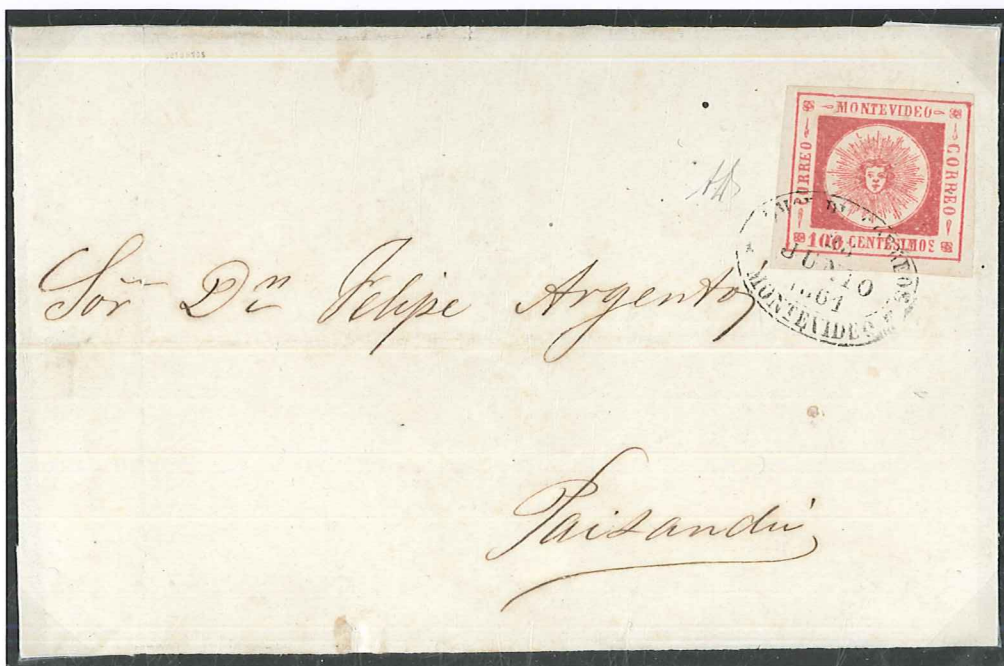 MONTEVIDEO
CORREO
CORREO
100 CENTESIMOS
JUNIO
1861
MONTEVIDEO
Sor. Dn Felipe Argento
Paisandú